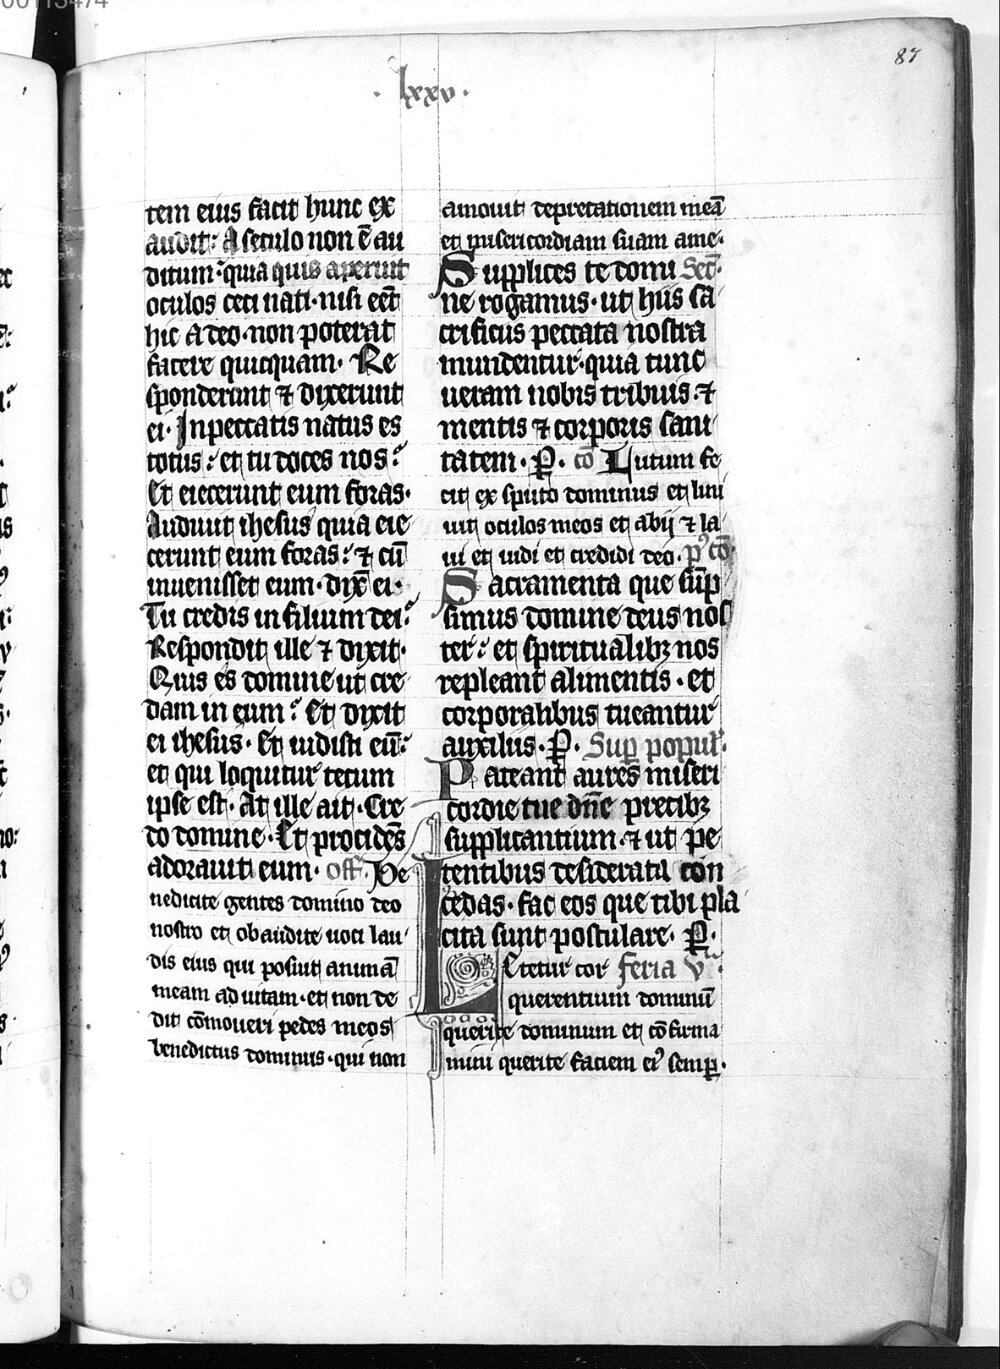 00113474
87
· lxxv ·
tem eius facit hunc ex
audit: A seculo non ē au
ditum: quia quis aperuit
oculos ceci nati · nisi eēt
hic a deo · non poterat
facere quicquam · Re
sponderunt ⁊ dixerunt
ei · In peccatis natus es
totus: et tu doces nos?
Et eiecerunt eum foras ·
Audiuit ihesus quia eie
cerunt eum foras: ⁊ cū
inuenisset eum · dix̄ ei ·
Tu credis in filium dei?
Respondit ille ⁊ dixit ·
Quis es domine ut cre
dam in eum? Et dixit
ei ihesus · Et uidisti eū:
et qui loquitur tecum
ipse est · At ille ait · Cre
do domine · Et procidēs
adorauit eum · off. Be
nedicite gentes domino deo
nostro et obaudite uoci lau
dis eius qui posuit animā
meam ad uitam · et non de
dit cōmoueri pedes meos
benedictus dominus · qui non
amouit deprecationem meā
et misericordiam suam a me ·
Supplices te domi Sec̄ ·
ne rogamus · ut hiis sa
crificiis peccata nostra
mundentur · quia tunc
ueram nobis tribuis · ⁊
mentis ⁊ corporis sani
tatem · P. cō Lutum fe
cit ex sputo dominus et lini
uit oculos meos et abij ⁊ la
ui et uidi et credidi deo · p᾽ cō ·
Sacramenta que sūp
simus domine deus nos
ter: et spiritualibꝫ nos
repleant alimentis · et
corporalibus tueantur
auxiliis · P. Sup popul̄ ·
Pateant aures miseri
cordie tue dn̄e precibꝫ
supplicantium · ⁊ ut pe
tentibus desiderata con
cedas · fac eos que tibi pla
cita sunt postulare · P.
Letetur cor feria v᾽
querentium dominū
querite dominum et cōfirma
mini querite faciem ei᾽ semꝑ ·